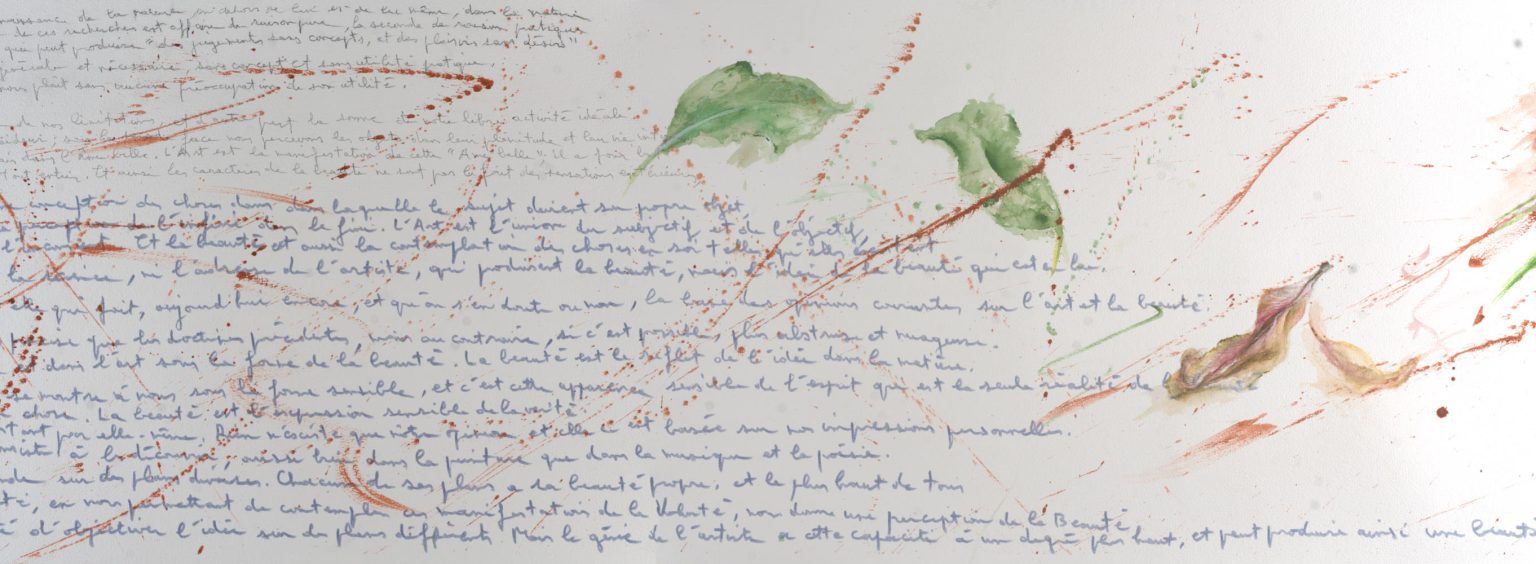 de ces recherches est affaire de raison pure, la seconde de raison pratique
qui peut produire "des jugements sans concepts, et des plaisirs sans désirs"
et nécessaire, sans concept et sans utilité pratique.
plaît sans aucune préoccupation de son utilité.
de nos limitations d'autre part la somme de notre libre activité idéale
nous percevons les objets dans leur plénitude et leur vie
L'Art est la manifestation de cette "Ame belle". Il a pour
Et ainsi les caractères de la beauté ne sont pas l'effet des sensations
conception des choses dans laquelle le sujet devient son propre objet
perception de l'infini dans le fini. L'Art est l'union du subjectif et de l'objectif,
Et la beauté est aussi la contemplation des choses en soi telles qu'elles existent
la science, ni l'adresse de l'artiste, qui produisent la beauté, mais l'idée de la beauté qui est en lui.
qui fait, aujourd'hui encore, et qu'on s'en doute ou non, la base des opinions courantes sur l'art et la beauté.
que les doctrines précédentes, mais au contraire, si c'est possible, plus abstruse et nuageuse.
et dans l'art sous la forme de la beauté. La beauté est le reflet de l'idée dans la matière.
se montre à nous sous la forme sensible, et c'est cette apparence sensible de l'esprit qui est la seule réalité de la
chose. La beauté est l'expression sensible de la vérité
par elle-même. Rien n'existe que notre opinion et elle est basée sur nos impressions personnelles.
à la découvrir, aussi bien dans la peinture que dans la musique et la poésie.
sur des plans diverses. Chacun de ses plans a sa beauté propre, et le plus haut de tous
en nous permettant de contempler ces manifestations de la Volonté, nous donne une perception de la Beauté
d'objectiver l'idée sur des plans différents. Mais le génie de l'artiste a cette capacité à un degré plus haut, et peut produire ainsi une beauté